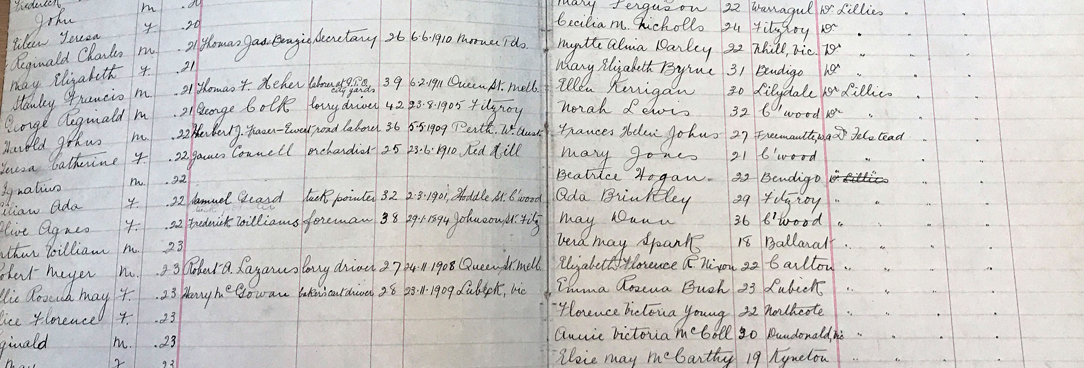 Frederick .20 Mary Ferguson 22 Warragul Dr Lillies
John F. .20 Cecilia M. Nicholls 24 Fitzroy Dr "
Eileen Teresa m. .21 Thomas Jas. Benzie Secretary 26 6.6.1910 Moonee Pds. Myrtle Alma Darley 22 Nhill, Vic. Dr "
Reginald Charles F. .21 Mary Elizabeth Byrne 31 Bendigo Dr "
May Elizabeth m. .21 Thomas F. Heher labourer G.P.O. city yards 39 6.2.1911 Queen St. Melb. Ellen Kerrigan 30 Lilydale Dr Lillies
Stanley Francis m. .21 George Colk lorry driver 42 23.8.1905 Fitzroy Norah Lewis 32 C'wood Dr
George Reginald m. .22 Herbert J. Fraser-Ewest road laborer 36 5.5.1909 Perth, W. Aust Frances Helen Johns 27 Freemantle, wa Dr Felstead
Harold Johns F. .22 James Connell orchardist 25 23.6.1910 Red Hill Mary Jones 21 C'wood " "
Teresa Catherine m. .22 Beatrice Hogan 22 Bendigo Dr Lillies
Ignatius F. .22 Samuel Geard tuck pointer 32 2.3.1901, Hoddle St. C'wood Ada Brinkley 29 Fitzroy " "
Lilian Ada F. .22 Frederick Williams foreman 38 29.1.1894 Johnson St. Fitz May Dunn 36 C'wood " "
Olive Agnes m. .23 Vera May Spark 18 Ballarat " "
Arthur William m. .23 Robert A. Lazarus lorry driver 27 24.11.1908 Queen St. Melb Elizabeth Florence R. Nixon 22 Carlton " "
Robert Meyer F. .23 Harry McGowan baker's cart driver 28 23.11.1909 Lubeck, Vic Emma Rosena Bush 23 Lubeck " "
Rosena May F. .23 Florence Victoria Young 22 Northcote " "
Florence m. .23 Annie Victoria McColl 20 Dundonald, Vic " "
.23 Elsie May McCarthy 19 Kyneton " "